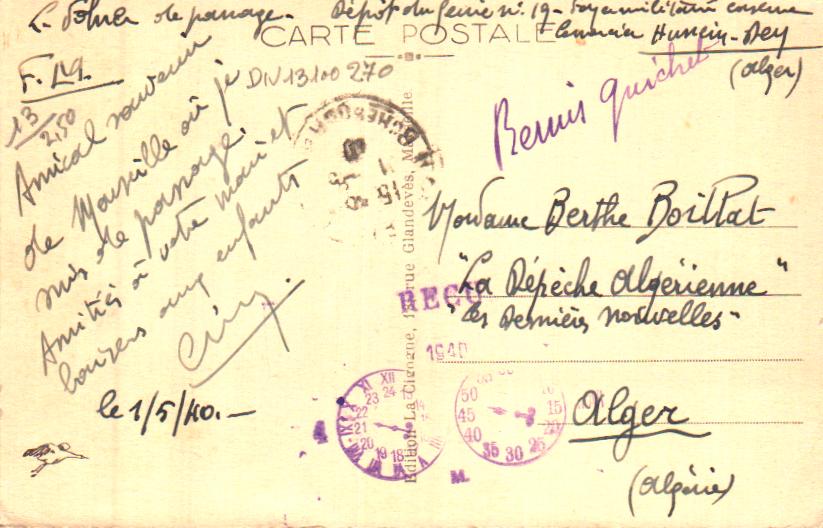 de passage. Dépôt du Génie n° 19 -
CARTE POSTALE
Hussein-Dey
(Alger)
F.M.
13
2,50
DIV 13100 270
Remis guichet
Amical souvenir
de Marseille où je
suis de passage.
Amitiés à votre mari et
baisers aux enfants
le 1/5/40.-
Edition La Cigogne, rue Glandevès, Marseille
Madame Berthe Boillat
"La Dépêche Algérienne"
"Les Dernières nouvelles"
REÇU
1940
Alger
(Algérie)
XI XII
23 24
22
21
20
19 18
50
45
40
35 30 25
20
15
10
M.